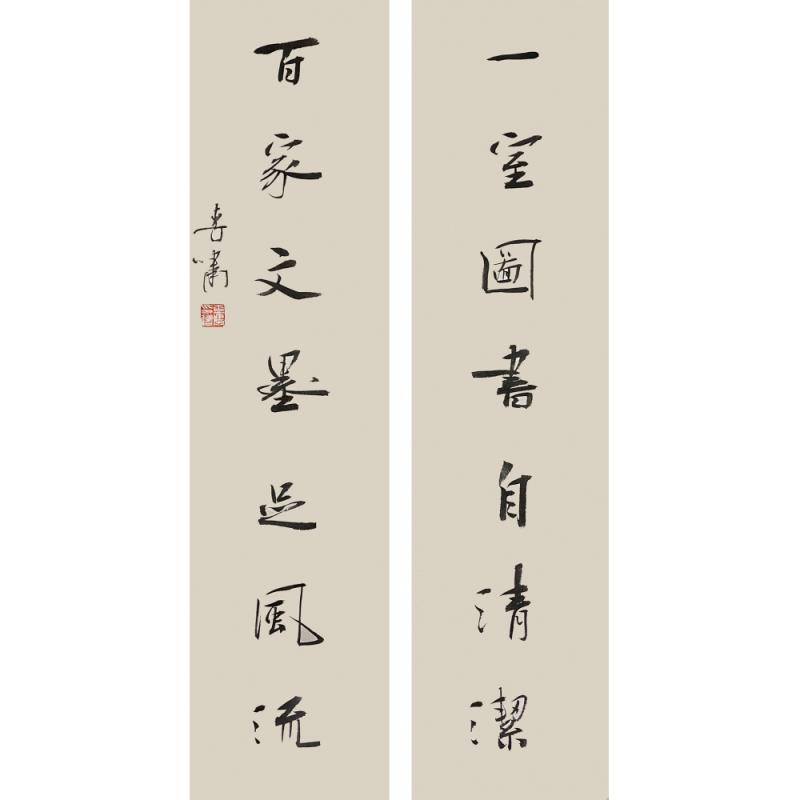 一室圖書自清潔
百家文墨足風流
嘯